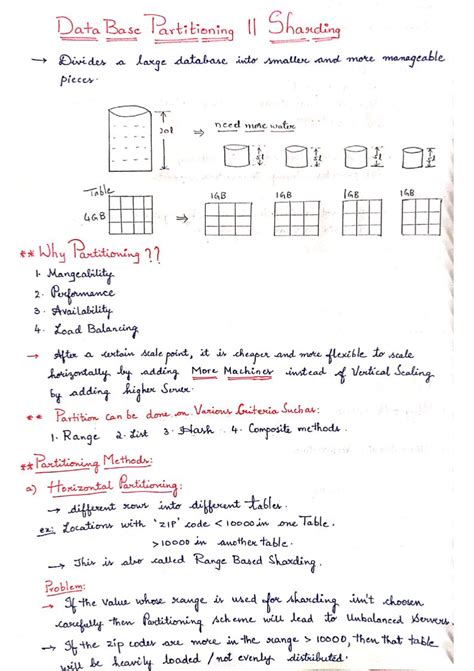 Data Base Partitioning || Sharding
→ Divides a large database into smaller and more manageable
pieces.
20l ⇒ need more water 5l 5l 5l 5l
Table
4GB ⇒ 1GB 1GB 1GB 1GB
** Why Partitioning ??
1. Mangeability
2. Performance
3. Availability
4. Load Balancing
→ After a certain scale point, it is cheaper and more flexible to scale
horizontally by adding More Machines instead of Vertical Scaling
by adding higher Server.
** Partition can be done on Various Criteria Suchas:
1. Range 2. List 3. Hash 4. Composite methods.
** Partitioning Methods:
a) Horizontal Partitioning:
→ different rows into different tables.
ex: Locations with 'ZIP' code < 10000 in one Table.
> 10000 in another table.
→ This is also called Range Based Sharding.
Problem:
→ If the value whose range is used for sharding isn't choosen
carefully then Partitioning scheme will lead to Unbalanced Servers.
→ If the zip codes are more in the range > 10000, then that table
will be heavily loaded / not evenly distributed.